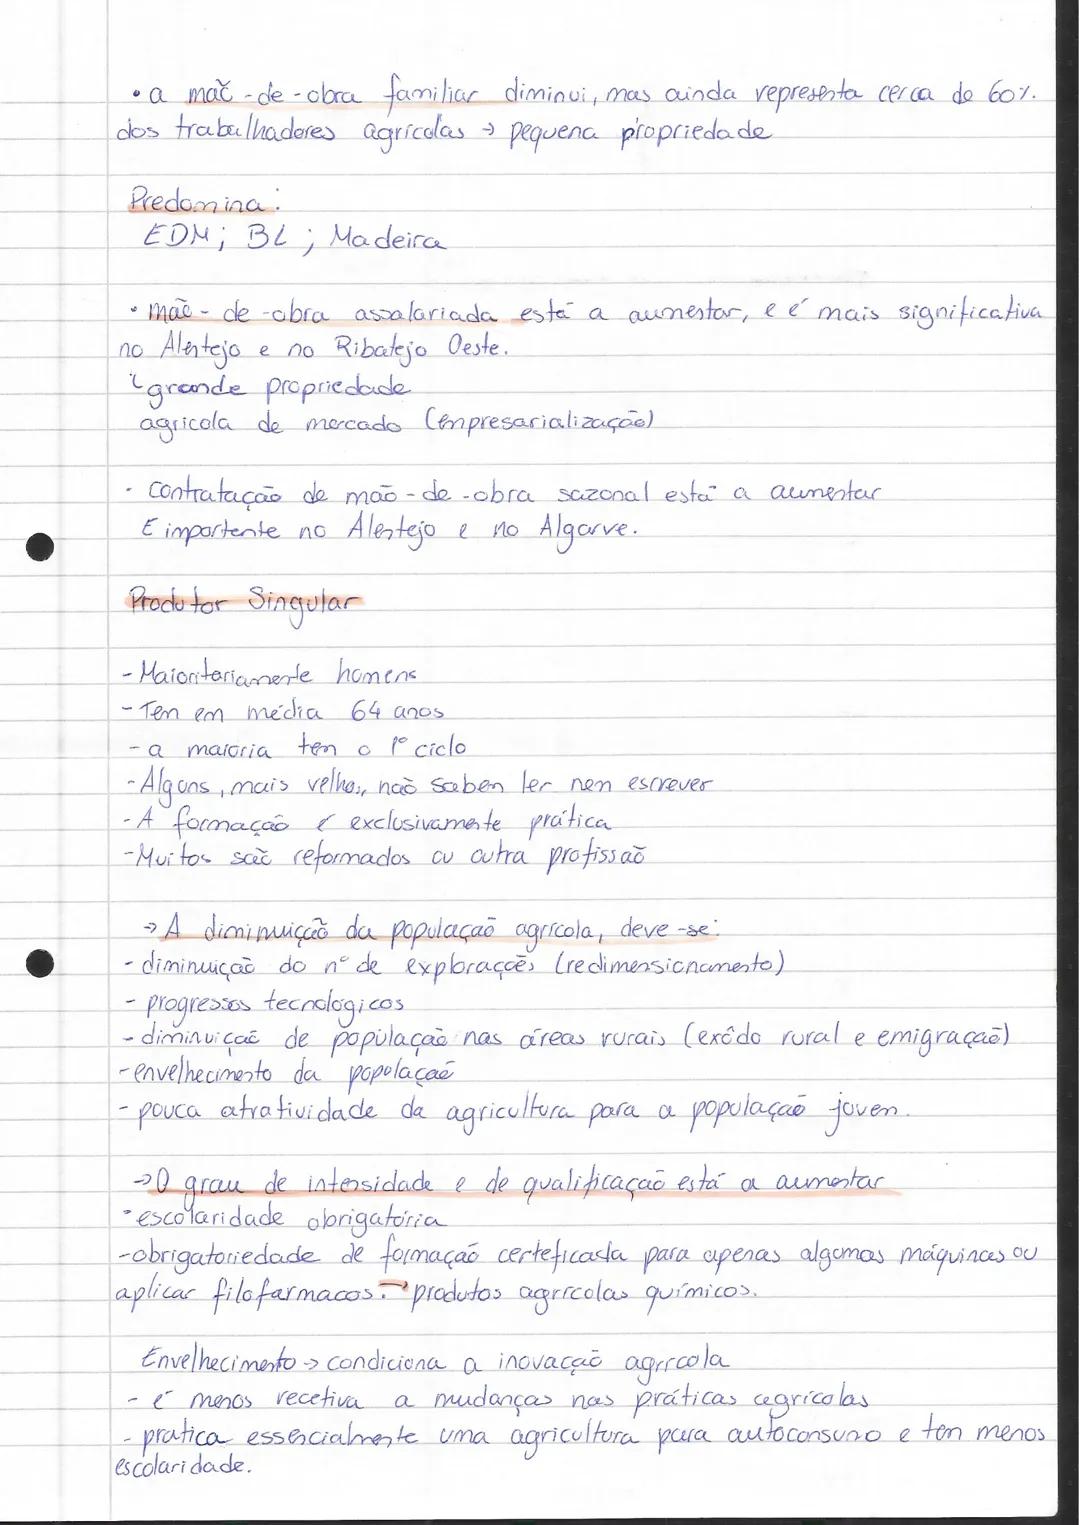 • a mão-de-obra familiar diminui, mas ainda representa cerca de 60%.
dos trabalhadores agrícolas → pequena propriedade
Predomina:
EDM; BL; Madeira
• mão-de-obra assalariada está a aumentar, e é mais significativa
no Alentejo e no Ribatejo Oeste.
↳ grande propriedade
agricola de mercado (empresarialização)
• contratação de mão-de-obra sazonal está a aumentar
E importante no Alentejo e no Algarve.
Produtor Singular
- Maioritariamente homens
- Tem em média 64 anos
- a maioria tem o 1º ciclo
- Alguns, mais velhos, não sabem ler nem escrever
- A formação é exclusivamente prática
- Muitos são reformados ou outra profissão
→ A diminuição da população agrícola, deve-se:
- diminuição do nº de explorações (redimensionamento)
- progressos tecnológicos
- diminuição de população nas áreas rurais (exôdo rural e emigração)
- envelhecimento da população
- pouca atratividade da agricultura para a população jovem.
→ O grau de intensidade e de qualificação está a aumentar
• escolaridade obrigatória
- obrigatoriedade de formação certeficada para apenas algumas máquinas ou
aplicar filofarmacos. → produtos agrícolas químicos.
Envelhecimento → condiciona a inovação agrícola
- é menos recetiva a mudanças nas práticas agrícolas
- pratica essencialmente uma agricultura para autoconsumo e tem menos
escolaridade.